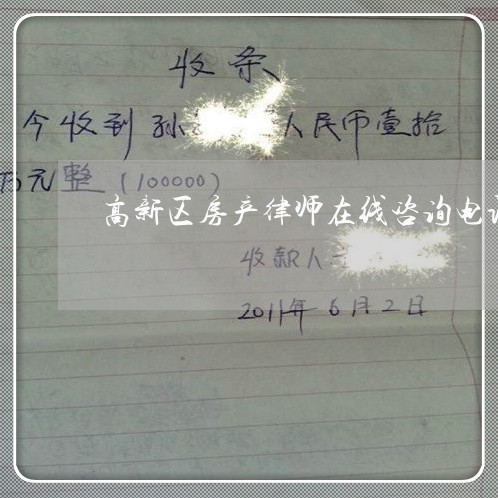 收条
今收到孙 人民币壹拾
万元整（100000）
高新区房产律师在线咨询电
收款人
2011年6月2日